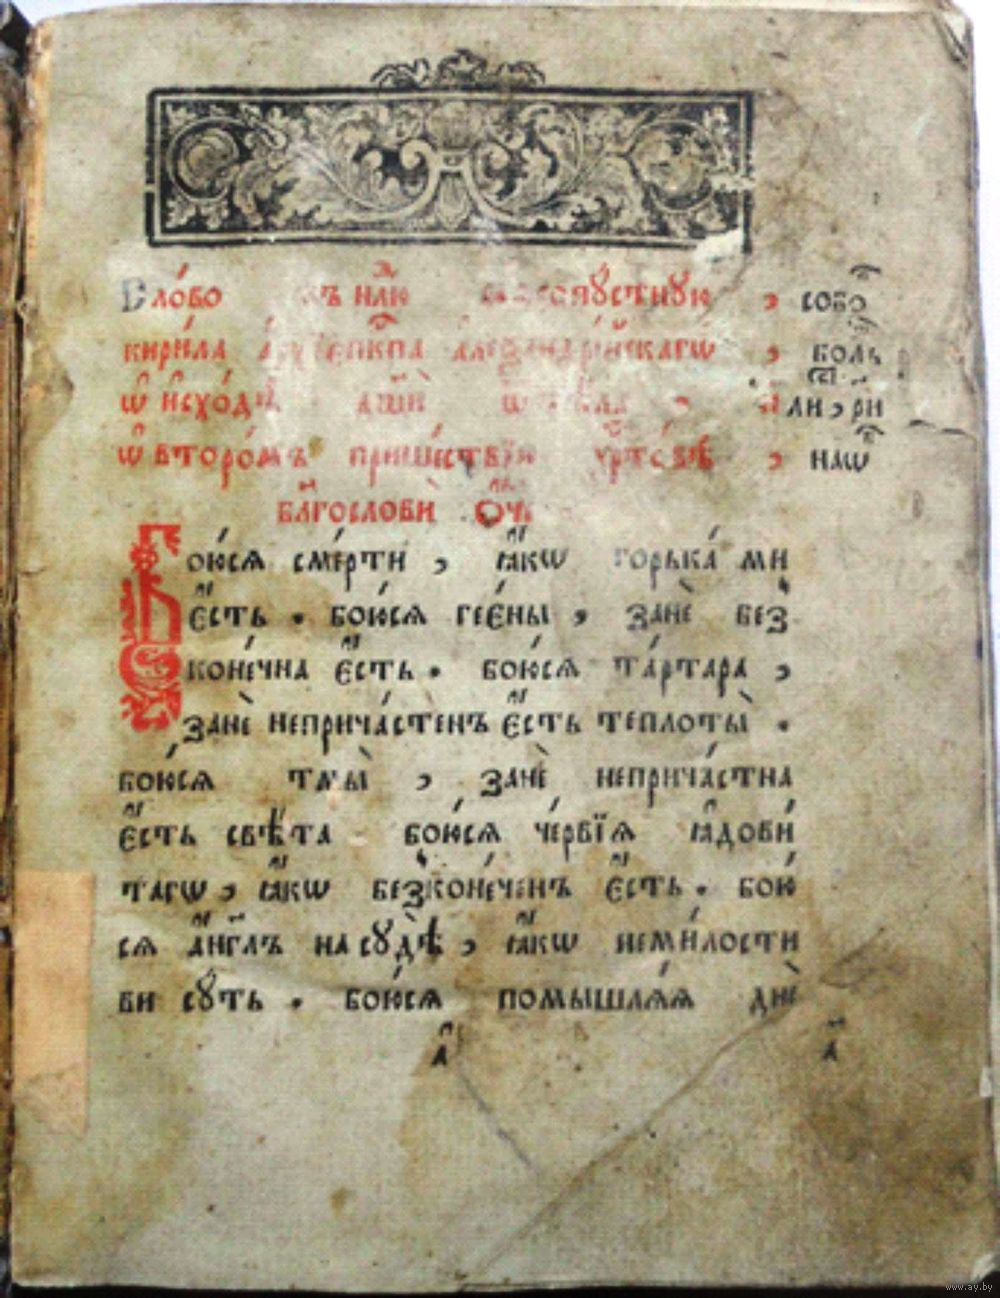 Слово въ нлю мѧсопꙋстнꙋю , собо
кирила архїепкпа алеѯандрїйскагѡ , боль
ѡ исходѣ дши ѿ тѣла , ли , ри
ѡ второмъ пришествїи хртовѣ , наш
блгослови Оч҃е
Боюсѧ смерти , ꙗкѡ горька ми
єсть . боюсѧ геєны , зане без
конечна єсть . боюсѧ тартара ,
зане непричастенъ єсть теплоты .
боюсѧ тмы , зане непричастна
єсть свѣта боюсѧ червїѧ ꙗдови
тагѡ , ꙗкѡ безконеченъ єсть . бою
сѧ англъ на сꙋдѣ , ꙗкѡ немилости
ви сꙋть . боюсѧ помышлѧѧ дне
а а
www.ay.by